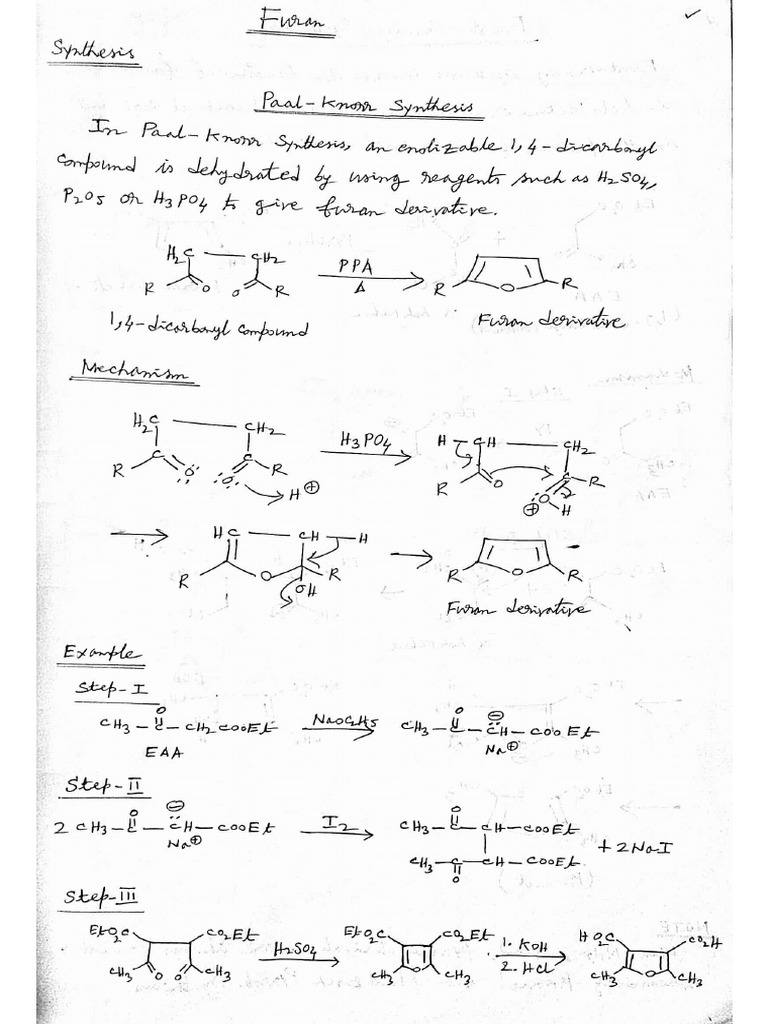 Furan
Synthesis
Paal-Knorr Synthesis
In Paal-Knorr Synthesis, an enolizable 1,4-dicarbonyl
compound is dehydrated by using reagents such as H2SO4,
P2O5 or H3PO4 to give furan derivative.
H2C — CH2 PPA
R O O R Δ R O R
1,4-dicarbonyl compound Furan derivative
Mechanism
H2C — CH2 H3PO4 H CH — CH2
R C O O C R H⊕ R O C R
⊕ O H
HC — CH — H
R O R OH R O R
Furan derivative
Example
Step-I
O O ⊖
CH3 – C – CH2 COOEt NaOC2H5 CH3 – C – CH – COOEt
EAA Na⊕
Step-II
O ⊖ O
2 CH3 – C – CH – COOEt I2 CH3 – C – CH – COOEt
Na⊕ + 2NaI
CH3 – C – CH – COOEt
O
Step-III
EtO2C CO2Et H2SO4 EtO2C CO2Et 1. KOH HO2C CO2H
CH3 O O CH3 CH3 O CH3 2. HCl CH3 O CH3